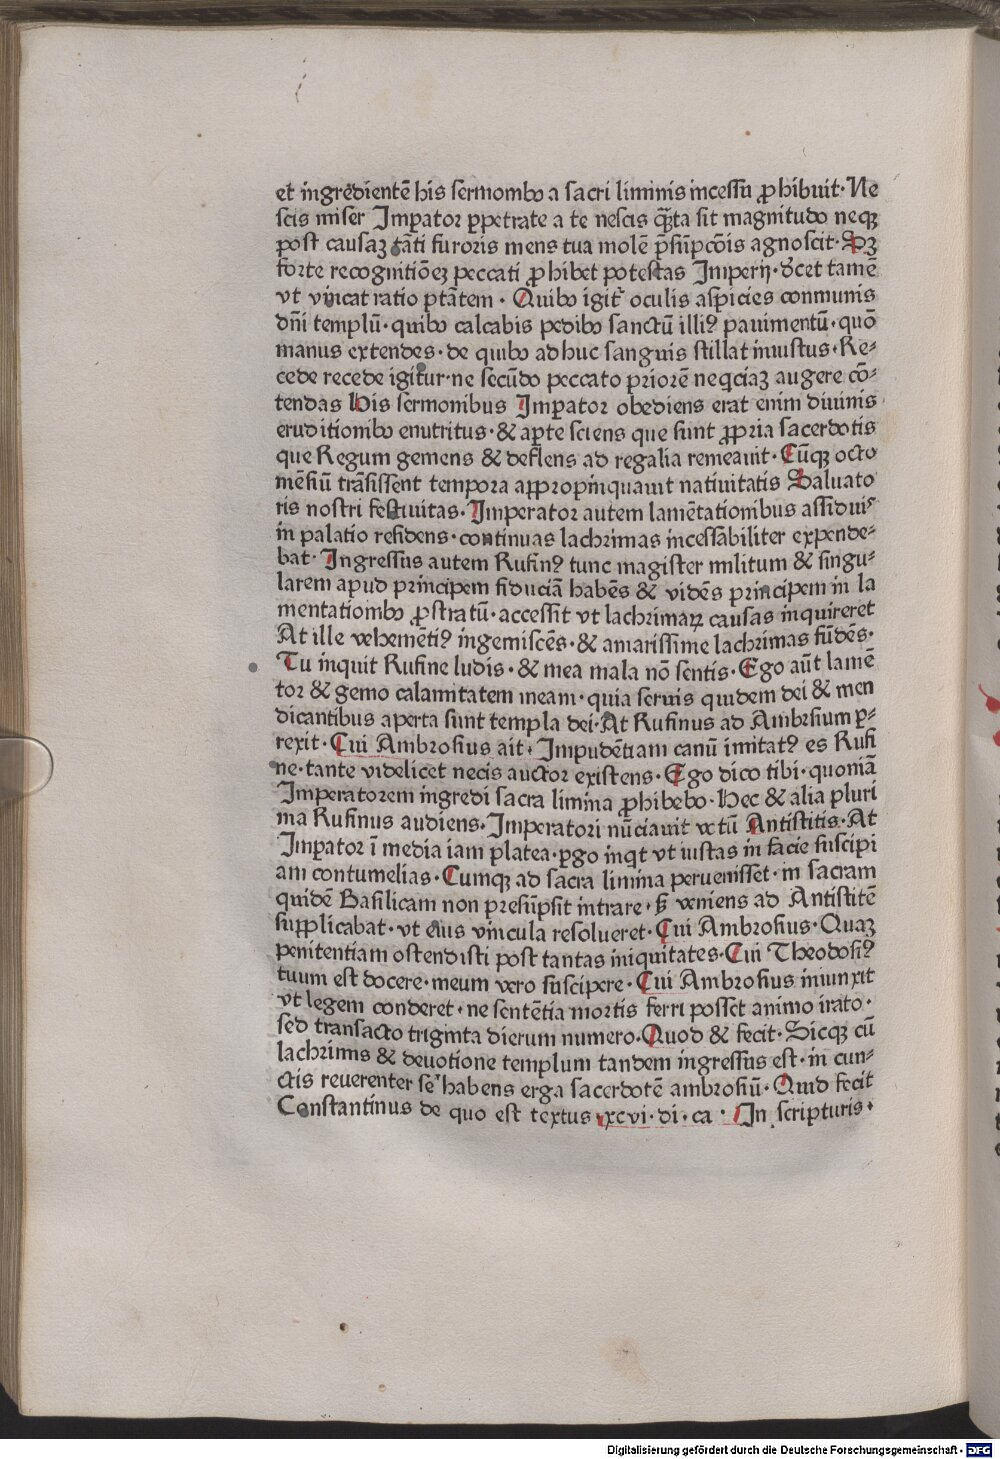 et ingredientē his sermonibꝰ a sacri liminis incessu ꝓhibuit· Ne
scis miser Imꝑator ꝑpetrate a te necis quāta sit magnitudo neqꝫ
post causaꝫ tāti furoris mens tua molē p̄sūpcōis agnoscit· Sꝫ
forte recognitiōeꝫ peccati ꝓhibet potestas Imperij· dꝫcet tamē
vt vincat ratio ptātem · Quibꝰ igit᷑ oculis aspicies conmunis
dn̄i templū· quibꝰ calcabis pedibꝰ sanctū illiꝰ pauimentū· quō
manus extendes· de quibꝰ adhuc sanguis stillat iniustus· Re⸗
cede recede igitur· ne secūdo peccato priorē neqciaꝫ augere cō⸗
tendas His sermonibus Imꝑator obediens erat enim diuinis
eruditionibꝰ enutritus· & aꝑte sciens que sunt ꝓpria sacerdotis
que Regum gemens & deflens ad regalia remeauit· Cūqꝫ octo
mēsiū trāsissent tempora appropinquauit natiuitatis Saluato
ris nostri festiuitas· Imperator autem lamētationibus assiduis
in palatio residens· continuas lachrimas incessabiliter expende⸗
bat· Ingressus autem Rufinꝰ tunc magister militum & singu⸗
larem apud principem fiduciā habēs & vidēs principem in la
mentationibꝰ ꝓstratū· accessit vt lachrimaꝝ causas inquireret
At ille vehemētiꝰ ingemiscēs· & amarissime lachrimas fūdēs·
Tu inquit Rufine ludis· & mea mala nō sentis· Ego aūt lamē
tor & gemo calamitatem meam· quia seruis quidem dei & men
dicantibus aperta sunt templa dei· At Rufinus ad Ambrsium ꝑ⸗
rexit· Cui Ambrosius ait· Impudētiam canū imitatꝰ es Rufi
ne· tante videlicet necis auctor existens· Ego dico tibi· quoniā
Imperatorem ingredi sacra limina ꝓhibebo· Hec & alia pluri
ma Rufinus audiens· Imperatori nūciauit vetū Antistitis· At
Imꝑator ī media iam platea· ꝑgo inqt vt iustas in facie suscipi
am contumelias· Cumqꝫ ad sacra limina peruenisset· in sacram
quidē Basilicam non presūpsit intrare· sꝫ veniens ad Antistitē
supplicabat· vt eius vincula resolueret· Cui Ambrosius· Quaꝫ
penitentiam ostendisti post tantas iniquitates· Cui Theodosiꝰ
tuum est docere· meum vero suscipere· Cui Ambrosius iniunxit
vt legem conderet· ne sentētia mortis ferri posset animo irato·
sed transacto triginta dierum numero· Quod & fecit· Sicqꝫ cū
lachrimis & deuotione templum tandem ingressus est· in cun⸗
ctis reuerenter se habens erga sacerdotē ambrosiū· Quid fecit
Constantinus de quo est textus xcvi· di· ca · In scripturis·
Digitalisierung gefördert durch die Deutsche Forschungsgemeinschaft - DFG